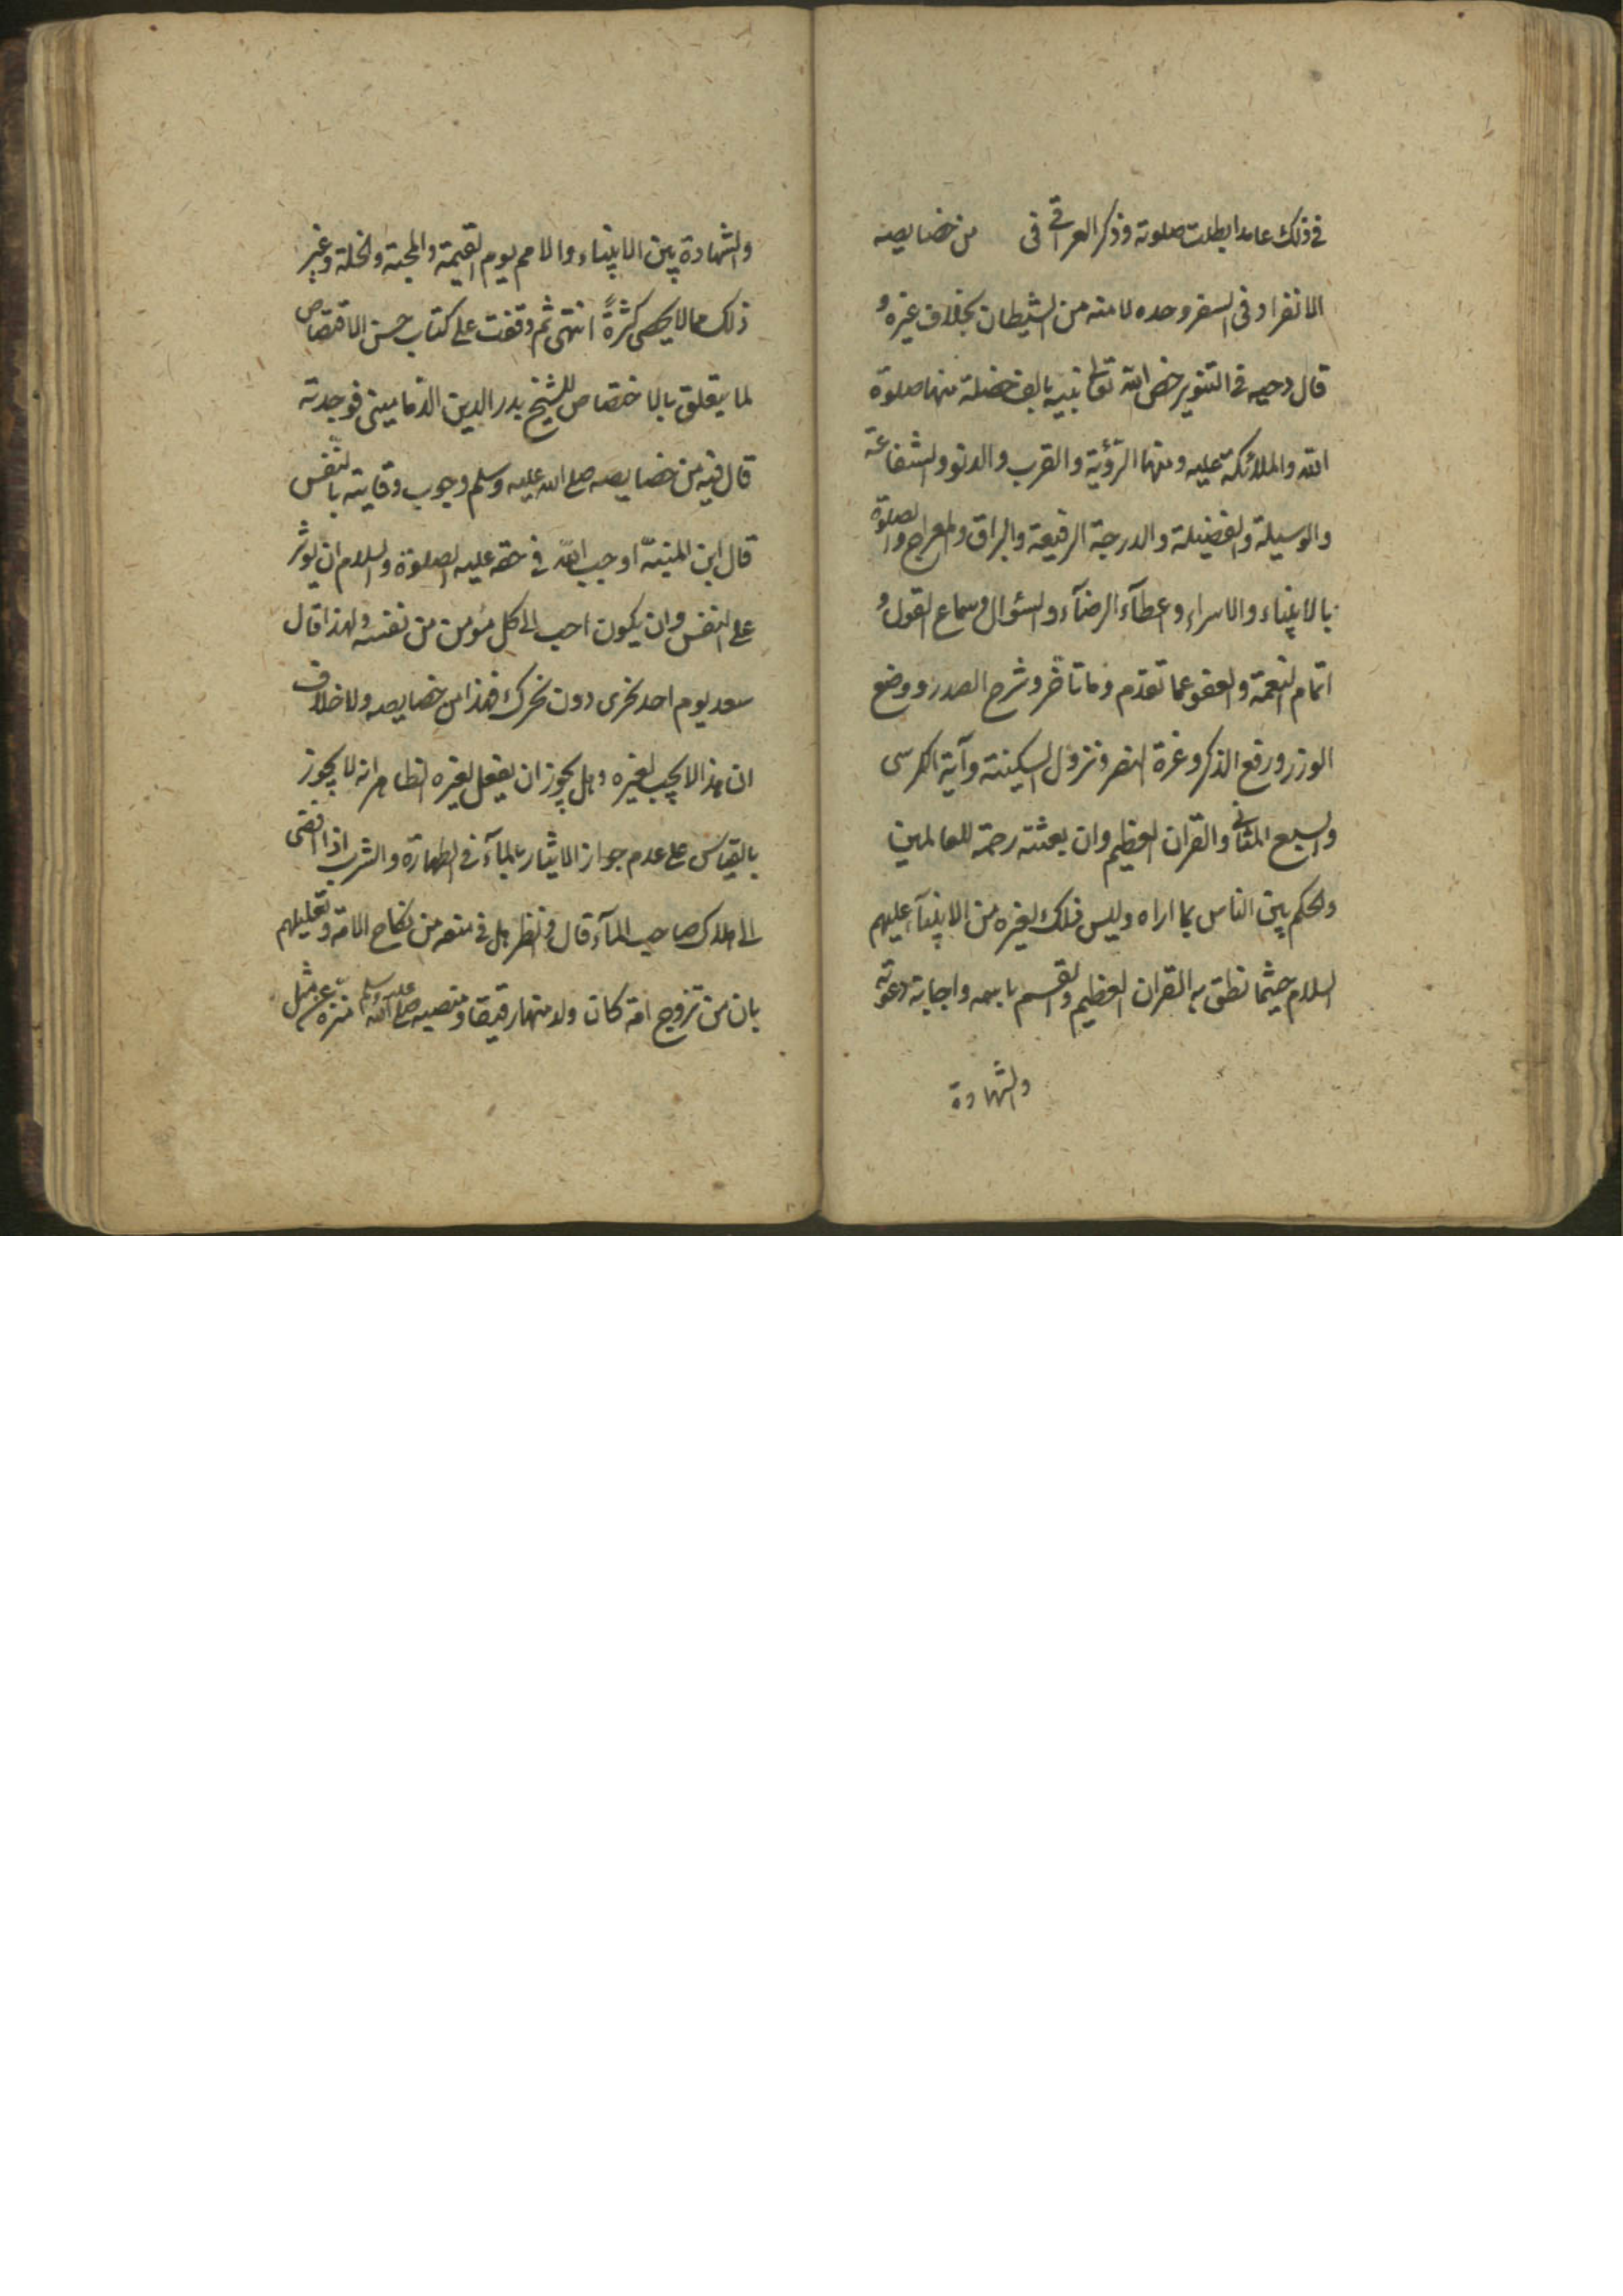 في ذلك عامدا بطلت صلوته وذكر العراقي في من خصايصه
الانفراد في السفر وحده لامنه من الشيطان بخلاف غيره و
قال دحيه في التنوير خص الله تعالى نبيه بالف خصلة منها صلوة
الله والملائكة عليه ومنها الرؤية والقرب والدنو والشفاعة
والوسيلة والفضيلة والدرجة الرفيعة والبراق والمعراج والصلوة
بالانبياء والاسراء وعطآء الرضآء والسؤال وسماع القول و
اتمام النعمة والعفو عما تقدم وما تأخر وشرح الصدر ووضع
الوزر ورفع الذكر وعزة النصر ونزول السكينة وآية الكرسى
والسبع المثاني والقران العظيم وان بعثته رحمة للعالمين
والحكم بين الناس بما اراه وليس ذلك لغيره من الانبيآء عليهم
السلام حيثما نطق به القران العظيم والقسم باسمه واجابة دعوته
والشهادة
والشهادة بين الانبياء والامم يوم القيمة والمحبة والخلة وغير
ذلك مما لا يحصى كثرةً انتهى ثم وقفت على كتاب حسن الاقتصاص
لما يتعلق بالاختصاص للشيخ بدر الدين الدمامينى فوجدته
قال فيه من خصايصه صلى الله عليه وسلم وجوب وقايته بالنفس
قال ابن المنيّر اوجب الله في حقه عليه الصلوة والسلام ان يوثر
على النفس وان يكون احب الى كل مؤمن من نفسه ولهذا قال
سعد يوم احد نحرى دون نحرك فهذا من خصايصه ولا خلاف
ان هذا لا يجب لغيره وهل يجوز ان يفعل لغيره الظاهر انه لا يجوز
بالقياس على عدم جواز الايثار بالمآء في الطهارة والشرب اذا افضى
الى هلاك صاحب المآء قال وانظر هل في منعه من نكاح الامة وتعليلهم
بان من تزوج امة كان ولد منها رقيقا ومنصبه صلى الله عليه وسلم منزه عن مثل